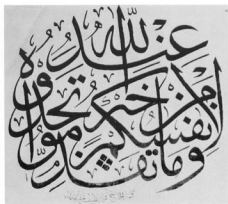 وما تقدموا
لانفسكم من خير تجدوه
عند الله